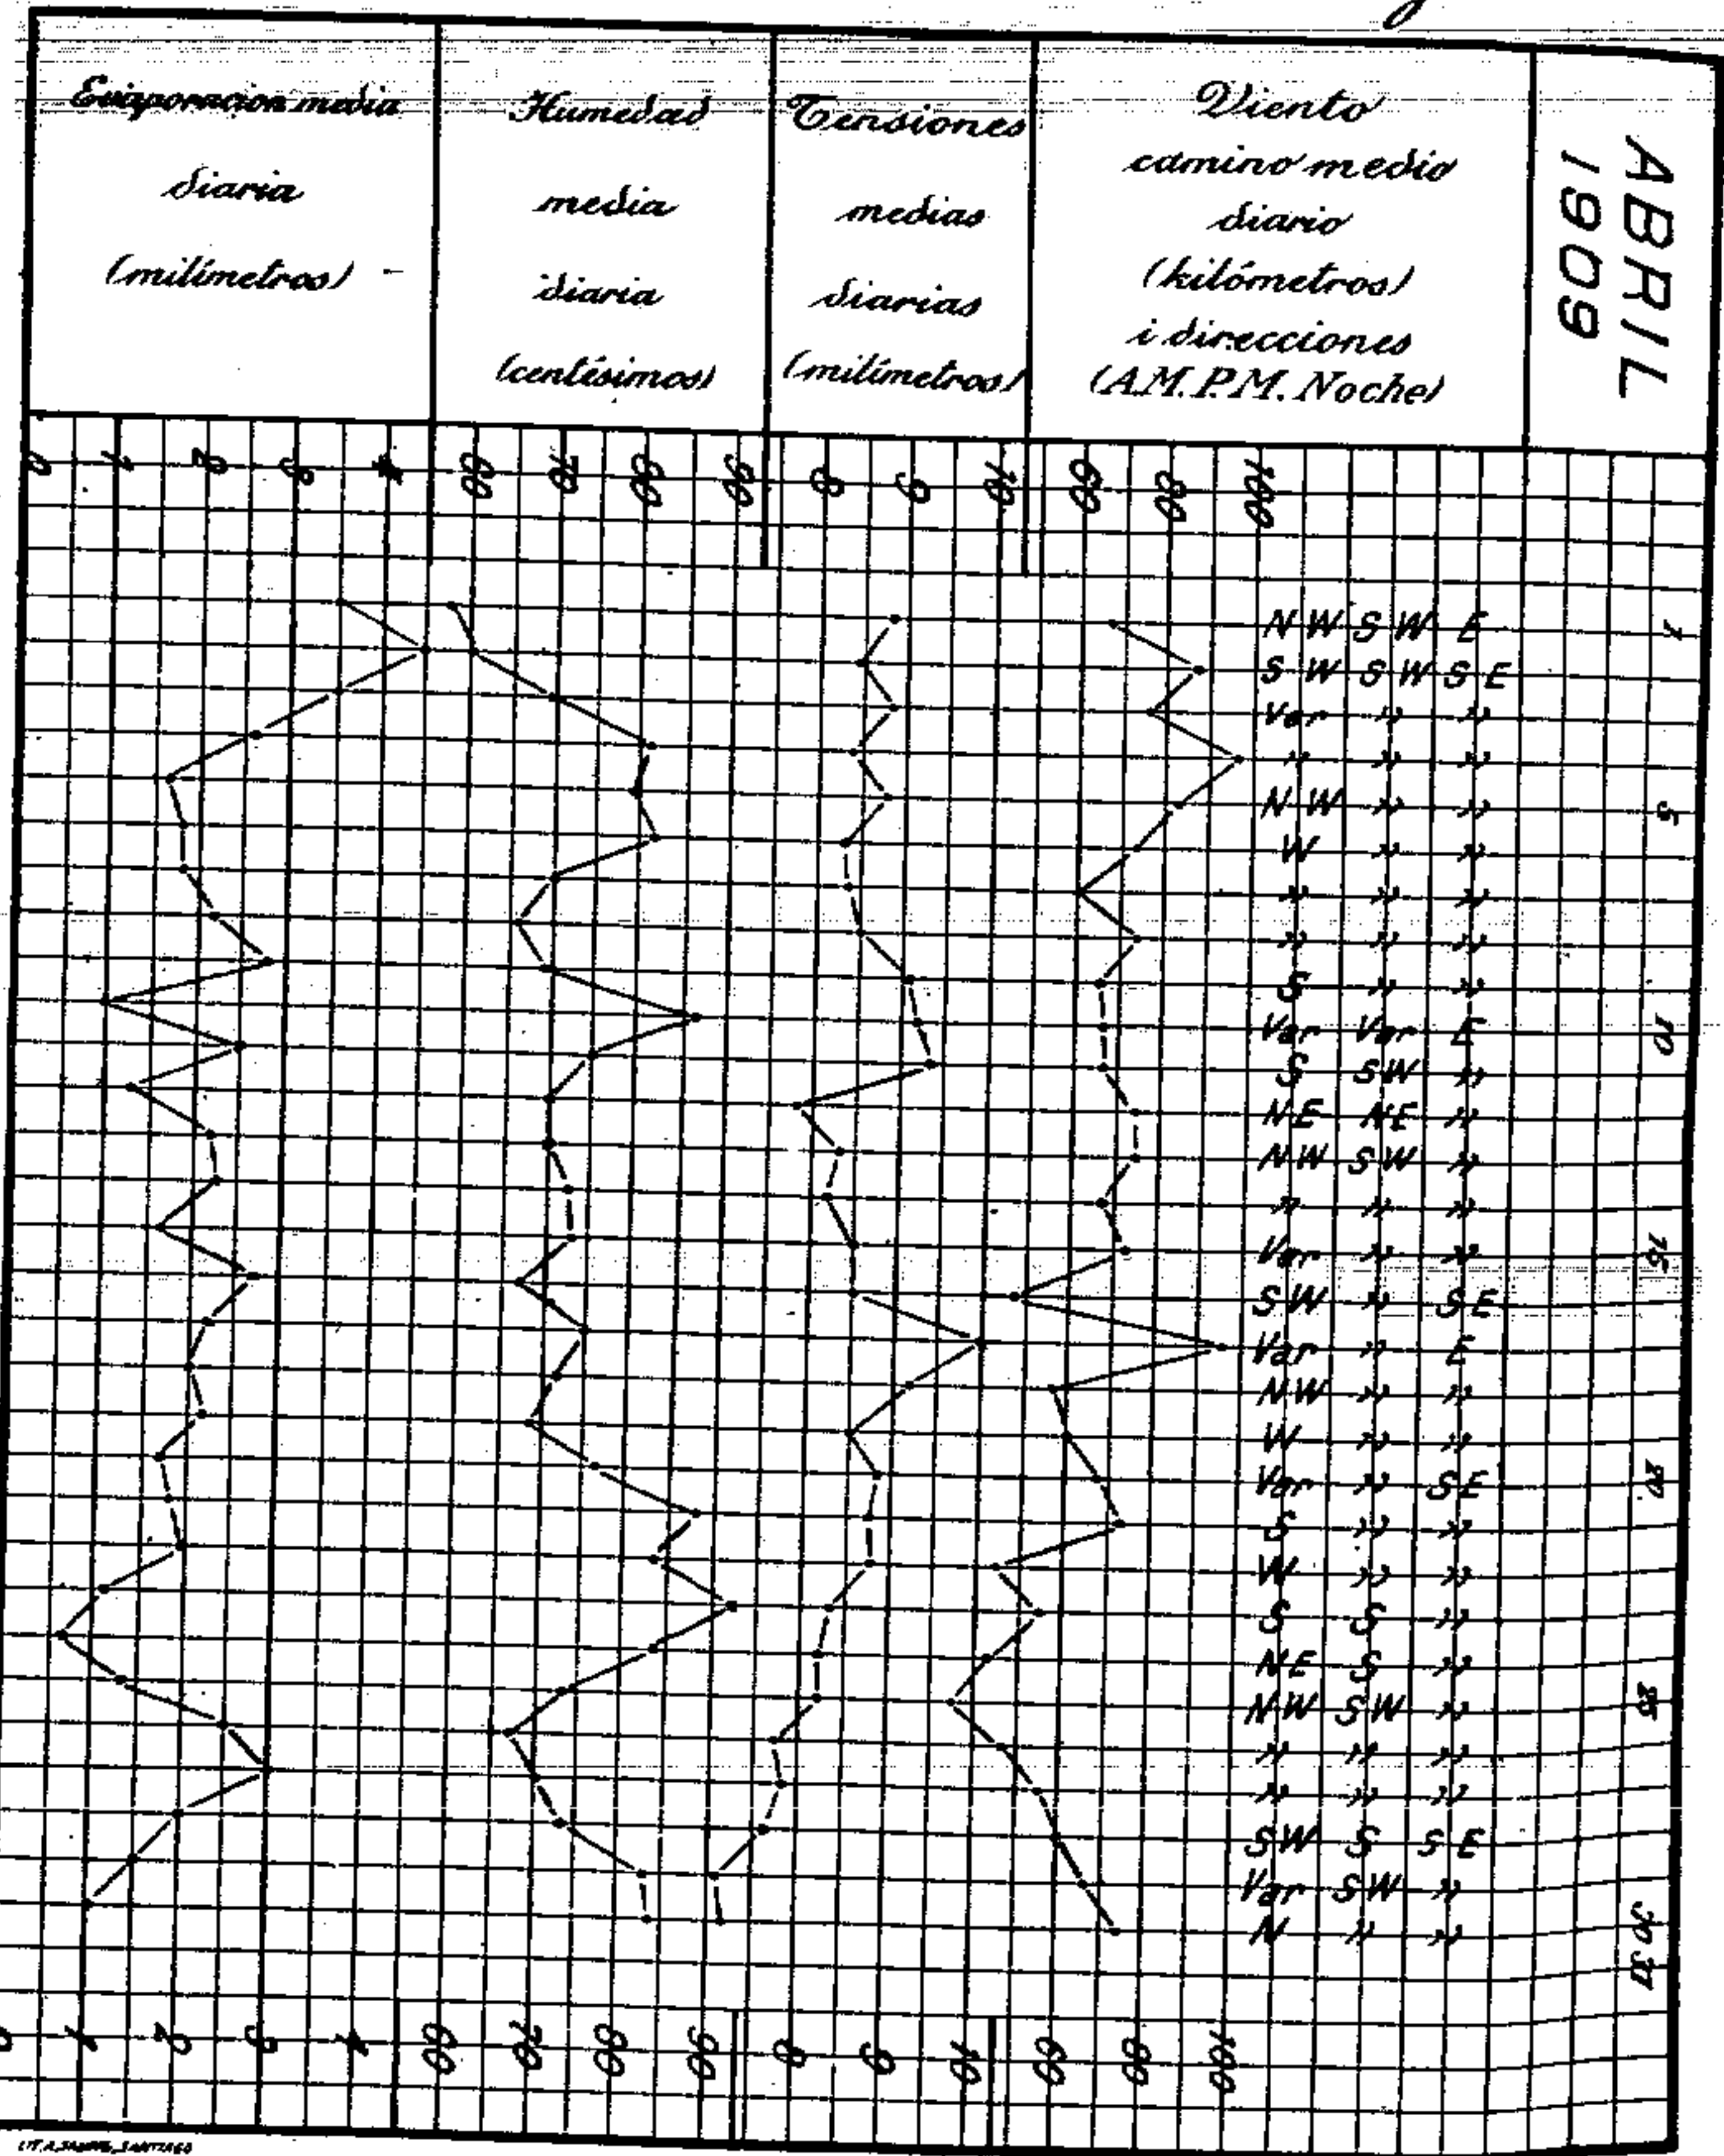 Evaporacion media
diaria
(milímetros)
Humedad
media
diaria
(centésimos)
Tensiones
medias
diarias
(milímetros)
Viento
camino medio
diario
(kilómetros)
i direcciones
(A.M. P.M. Noche)
ABRIL
1909
0 1 2 3 4 60 70 80 90 8 9 10 60 80 100
NW SW E 1
SW SW SE
Var " "
" " "
NW " " 5
W " "
" " "
" " "
S " "
Var Var E 10
S SW "
NE NE "
NW SW "
" " "
Var " " 15
SW " SE
Var " E
NW " "
W " "
Var " SE 20
S " "
W " "
S S "
NE S "
NW SW " 25
" " "
" " "
SW S SE
Var SW "
N " " 30
31
0 1 2 3 4 60 70 80 90 8 9 10 60 80 100
SANTIAGO